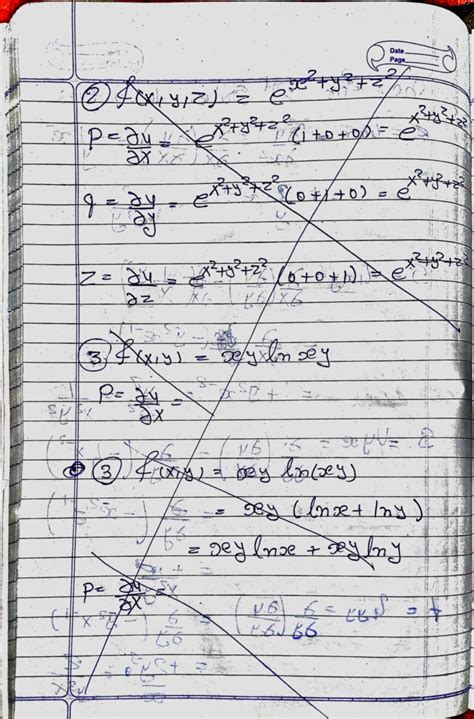 Date
Page
② f(x,y,z) = e^{x²+y²+z²}
P = ∂u/∂x = e^{x²+y²+z²} (1+0+0) = e^{x²+y²+z²}
q = ∂u/∂y = e^{x²+y²+z²} (0+1+0) = e^{x²+y²+z²}
z = ∂u/∂z = e^{x²+y²+z²} (0+0+1) = e^{x²+y²+z²}
3. f(x,y) = xy ln xy
P = ∂u/∂x =
③ f(x,y) = xy ln(xy)
= xy (lnx + lny)
= xy lnx + xy lny
P = ∂u/∂x =